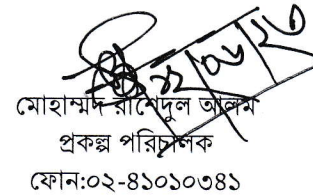 ১২/০৬/২৩
মোহাম্মদ রাশেদুল আলম
প্রকল্প পরিচালক
ফোন:০২-৪১০১০৩৪১